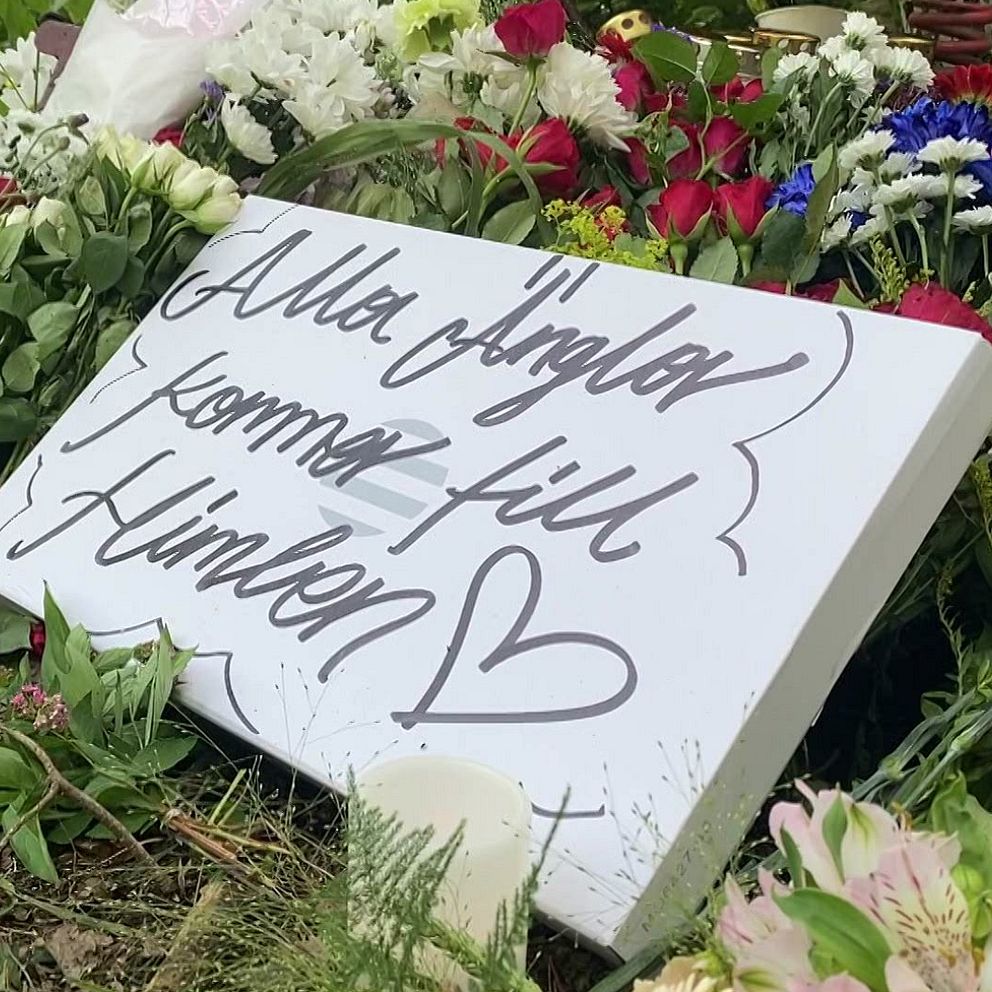 Alla Änglar
kommer till
Himlen